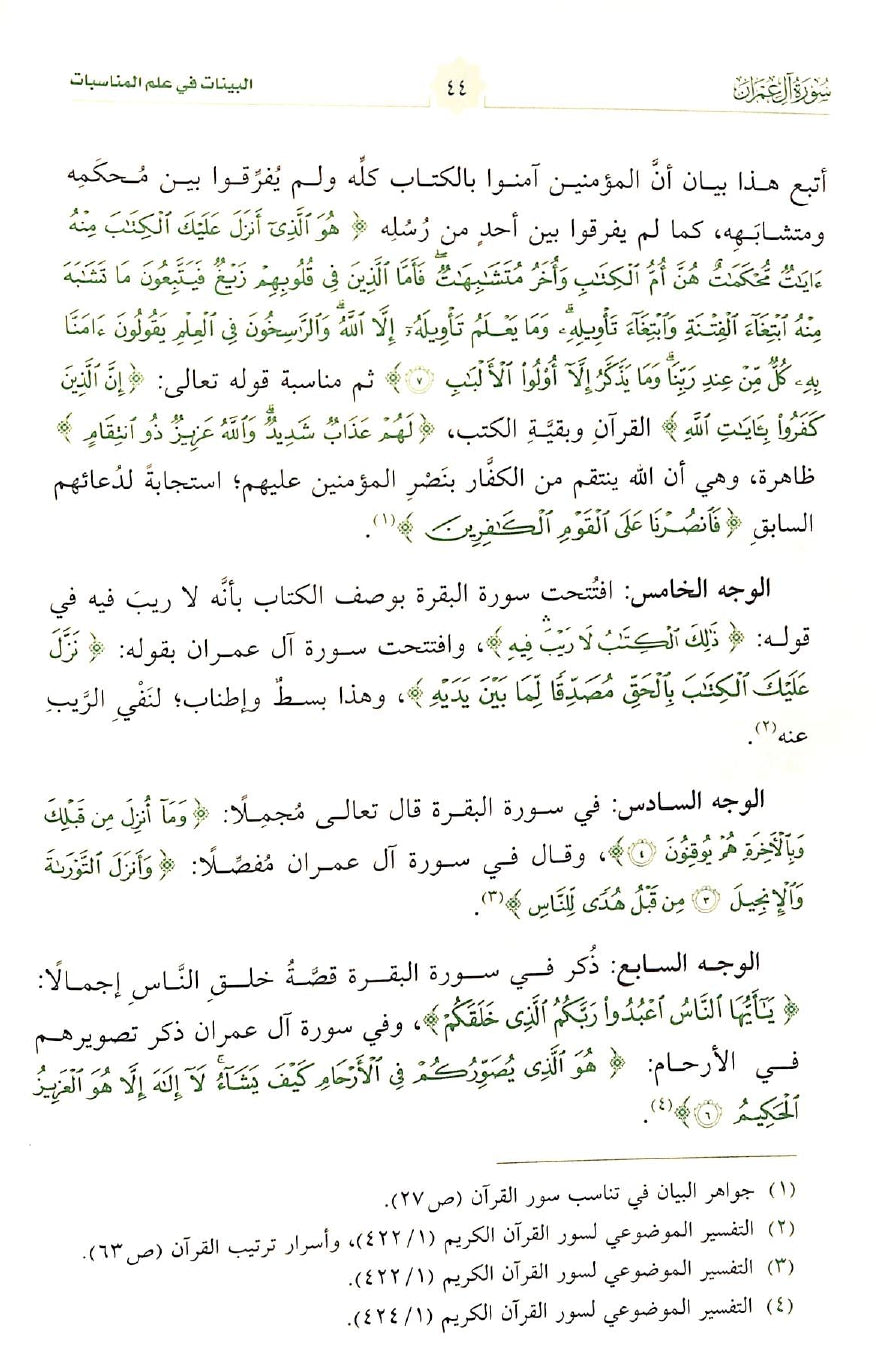 سُورَةُ آلِ عِمْرَان
٤٤
البينات في علم المناسبات
أتبع هذا بيان أنَّ المؤمنين آمنوا بالكتاب كلِّه ولم يُفرِّقوا بين مُحكَمِه
ومتشابَهِه، كما لم يفرقوا بين أحدٍ من رُسُلِه ﴿ هُوَ ٱلَّذِىٓ أَنزَلَ عَلَيْكَ ٱلْكِتَٰبَ مِنْهُ
ءَايَٰتٌ مُّحْكَمَٰتٌ هُنَّ أُمُّ ٱلْكِتَٰبِ وَأُخَرُ مُتَشَٰبِهَٰتٌ ۖ فَأَمَّا ٱلَّذِينَ فِى قُلُوبِهِمْ زَيْغٌ فَيَتَّبِعُونَ مَا تَشَٰبَهَ
مِنْهُ ٱبْتِغَآءَ ٱلْفِتْنَةِ وَٱبْتِغَآءَ تَأْوِيلِهِۦ ۗ وَمَا يَعْلَمُ تَأْوِيلَهُۥٓ إِلَّا ٱللَّهُ ۗ وَٱلرَّٰسِخُونَ فِى ٱلْعِلْمِ يَقُولُونَ ءَامَنَّا
بِهِۦ كُلٌّ مِّنْ عِندِ رَبِّنَا ۗ وَمَا يَذَّكَّرُ إِلَّآ أُو۟لُوا۟ ٱلْأَلْبَٰبِ ٧ ﴾ ثم مناسبة قوله تعالى: ﴿ إِنَّ ٱلَّذِينَ
كَفَرُوا۟ بِـَٔايَٰتِ ٱللَّهِ ﴾ القرآنِ وبقيَّةِ الكتب، ﴿ لَهُمْ عَذَابٌ شَدِيدٌ ۗ وَٱللَّهُ عَزِيزٌ ذُو ٱنتِقَامٍ ﴾
ظاهرة، وهي أن الله ينتقم من الكفَّار بنَصْرِ المؤمنين عليهم؛ استجابةً لدُعائهم
السابقِ ﴿ فَٱنصُرْنَا عَلَى ٱلْقَوْمِ ٱلْكَٰفِرِينَ ﴾(١).
الوجه الخامس: افتُتحت سورة البقرة بوصف الكتاب بأنَّه لا ريبَ فيه في
قوله: ﴿ ذَٰلِكَ ٱلْكِتَٰبُ لَا رَيْبَ ۛ فِيهِ ﴾، وافتتحت سورة آل عمران بقوله: ﴿ نَزَّلَ
عَلَيْكَ ٱلْكِتَٰبَ بِٱلْحَقِّ مُصَدِّقًا لِّمَا بَيْنَ يَدَيْهِ ﴾، وهذا بسطٌ وإطناب؛ لنَفْيِ الرَّيبِ
عنه(٢).
الوجه السادس: في سورة البقرة قال تعالى مُجمِلًا: ﴿ وَمَآ أُنزِلَ مِن قَبْلِكَ
وَبِٱلْءَاخِرَةِ هُمْ يُوقِنُونَ ٤ ﴾، وقال في سورة آل عمران مُفصِّلًا: ﴿ وَأَنزَلَ ٱلتَّوْرَىٰةَ
وَٱلْإِنجِيلَ ٣ مِن قَبْلُ هُدًى لِّلنَّاسِ ﴾(٣).
الوجه السابع: ذُكر في سورة البقرة قصَّةُ خلقِ النَّاسِ إجمالًا:
﴿ يَٰٓأَيُّهَا ٱلنَّاسُ ٱعْبُدُوا۟ رَبَّكُمُ ٱلَّذِى خَلَقَكُمْ ﴾، وفي سورة آل عمران ذكر تصويرهم
في الأرحام: ﴿ هُوَ ٱلَّذِى يُصَوِّرُكُمْ فِى ٱلْأَرْحَامِ كَيْفَ يَشَآءُ ۚ لَآ إِلَٰهَ إِلَّا هُوَ ٱلْعَزِيزُ
ٱلْحَكِيمُ ٦ ﴾(٤).
(١) جواهر البيان في تناسب سور القرآن (ص٢٧).
(٢) التفسير الموضوعي لسور القرآن الكريم (٤٢٢/١)، وأسرار ترتيب القرآن (ص٦٣).
(٣) التفسير الموضوعي لسور القرآن الكريم (٤٢٢/١).
(٤) التفسير الموضوعي لسور القرآن الكريم (٤٢٤/١).